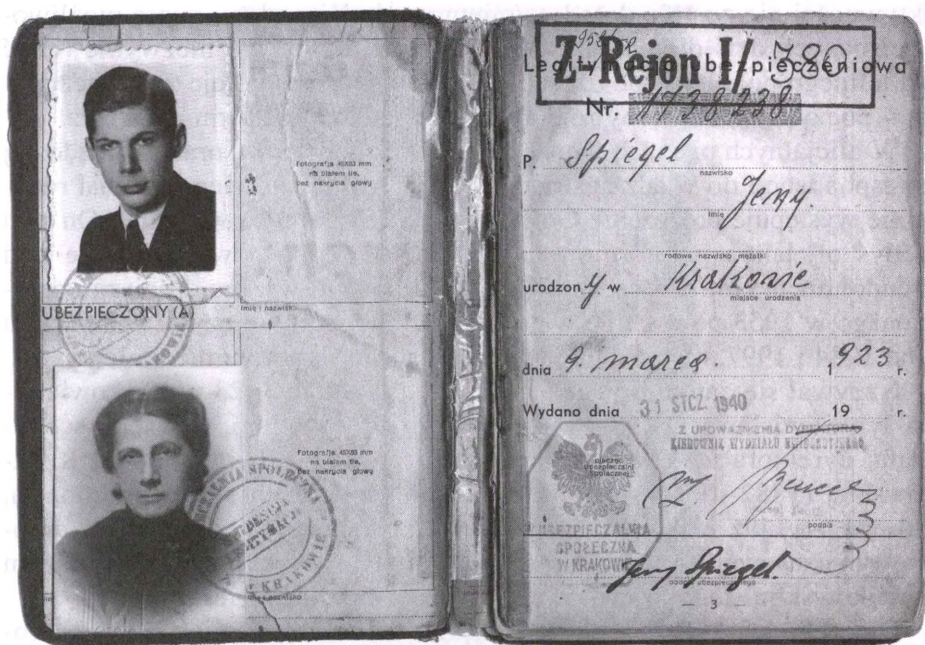 Fotografja 45X55 mm
na białem tle,
bez nakrycia głowy
UBEZPIECZONY (A)
imię i nazwisko
Fotografja 45X55 mm
na białem tle,
bez nakrycia głowy
SPOŁECZNA
W KRAKOWIE
Z-Rejon I/ 380
Legitymacja ubezpieczeniowa
Nr. 1738238
P. Spiegel
nazwisko
Jerzy.
imię
rodowe nazwisko mężatki
urodzony w Krakowie
miejsce urodzenia
dnia 9. marca. 1923 r.
Wydano dnia 31 STCZ. 1940 19 r.
Z UPOWAŻNIENIA DYREKTORA
KIEROWNIK WYDZIAŁU
pieczęć
Ubezpieczalni
Społecznej
podpis
UBEZPIECZALNIA
SPOŁECZNA
W KRAKOWIE
Jerzy Spiegel.
podpis ubezpieczonego
— 3 —